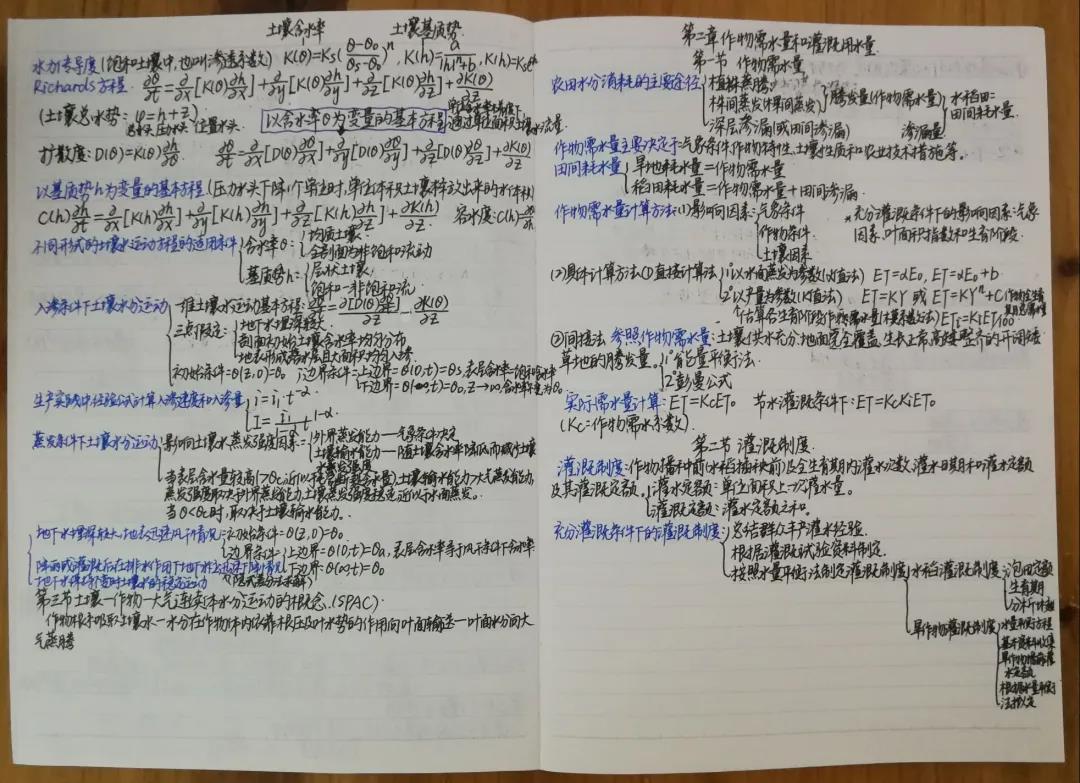 土壤含水率 土壤基质势
水力传导度(饱和土壤中,也叫渗透系数) K(θ)=Ks(θ-θ₀/θs-θ₀)ⁿ, K(h)=a/|h|ⁿ+b, K(h)=Ks
Richards方程. ∂θ/∂t=∂/∂x[K(θ)∂h/∂x]+∂/∂y[K(θ)∂h/∂y]+∂/∂z[K(θ)∂h/∂z]+∂K(θ)/∂z
(土壤总水势: φ=h+z)
总水头 压力水头 位置水头
通过单位面积土壤水流量
以含水率θ为变量的基本方程
扩散度: D(θ)=K(θ)∂h/∂θ. ∂θ/∂t=∂/∂x[D(θ)∂θ/∂x]+∂/∂y[D(θ)∂θ/∂y]+∂/∂z[D(θ)∂θ/∂z]+∂K(θ)/∂z
以基质势h为变量的基本方程(压力水头下降1个单位时,单位体积土壤释放出来的水体积)
C(h)∂h/∂t=∂/∂x[K(h)∂h/∂x]+∂/∂y[K(h)∂h/∂y]+∂/∂z[K(h)∂h/∂z]+∂K(h)/∂z 容水度:C(h)
不同形式的土壤水运动方程的适用条件
含水率θ: 均质土壤
全剖面为非饱和流动
基质势h: 层状土壤
饱和-非饱和流
入渗条件下土壤水分运动 一维土壤水运动基本方程: ∂θ/∂t=∂[D(θ)∂θ/∂z]/∂z-∂K(θ)/∂z
三点假定: 地下水埋深较大
剖面初始土壤含水率均匀分布
地表形成薄水层且大面积均匀入渗.
初始条件=θ(z,0)=θ₀ 边界条件=上边界=θ(0,t)=θs 表层含水率=饱和含水率
下边界=θ(∞,t)=θ₀, z→∞ 含水率不变为θ₀
生产实践中经验公式计算入渗速度和入渗量 i=i₁t^-α
I=i₁/1-α t^1-α.
蒸发条件下土壤水分运动 影响土壤水蒸发强度因素= 外界蒸发能力—气象条件决定
土壤输水能力—随土壤含水率降低而减小
当表层含水量较高(>θc,近似 ),土壤输水能力>大气蒸发能力,
蒸发强度取决于外界蒸发能力,土壤蒸发强度稳定,近似于水面蒸发.
当θ<θc时,取决于土壤输水能力.
地下水埋深较大,地表迅速风干情况 初始条件=θ(z,0)=θ₀.
边界条件=上边界=θ(0,t)=θa, 表层含水率等于风干条件下含水率
降雨或灌溉后在排水作用下地下水位迅速下降情况 下边界=θ(∞,t)=θ₀
地下水保持定时土壤水的稳定运动 (隐式差分法求解)
第三节 土壤—作物—大气连续体水分运动的概念.(SPAC)
作物根系吸取土壤水—水分在作物体内依靠根压及叶水势的作用向叶面输送—叶面水分向大
气蒸腾
第二章 作物需水量和灌溉用水量.
第一节 作物需水量
农田水分消耗的主要途径 植株蒸腾
株间蒸发(棵间蒸发) 腾发量(作物需水量) 水稻田=
深层渗漏(或田间渗漏) 渗漏量 田间耗水量
作物需水量主要决定于气象条件、作物特性、土壤性质和农业技术措施等.
田间耗水量 旱地耗水量=作物需水量
稻田耗水量=作物需水量+田间渗漏.
作物需水量计算方法:(1)影响因素: 气象条件 *充分灌溉条件下的影响因素:气象
作物条件 因素、叶面积指数和生育阶段.
土壤因素
(2)具体计算方法①直接计算法 1°以水面蒸发为参数(α值法) ET=αE₀, ET=αE₀+b
2°以产量为参数(K值法) ET=KY 或 ET=KYⁿ+C
估算各生育阶段作物需水量(模系数法) ETᵢ=KᵢET/100
②间接法 参照作物需水量:土壤供水充分,地面完全覆盖,生长正常,高矮整齐的开阔矮
草地的腾发量. 1°能量平衡法.
2°彭曼公式
实际需水量计算:ET=KcET₀ 节水灌溉条件下:ET=KcKsET₀
(Kc=作物需水系数)
第二节 灌溉制度.
灌溉制度:作物播种前(水稻插秧前)及全生育期内灌水次数,灌水日期和灌水定额
及其灌溉定额. 灌水定额:单位面积上一次灌水量.
灌溉定额:灌水定额之和.
充分灌溉条件下的灌溉制度: 总结群众丰产灌水经验.
根据灌溉试验资料制定.
按照水量平衡法制定灌溉制度 水稻灌溉制度 泡田定额
生育期
旱作物灌溉制度 水量平衡方程
基本资料收集
旱作物播前灌
水定额
根据水量平衡
法拟定